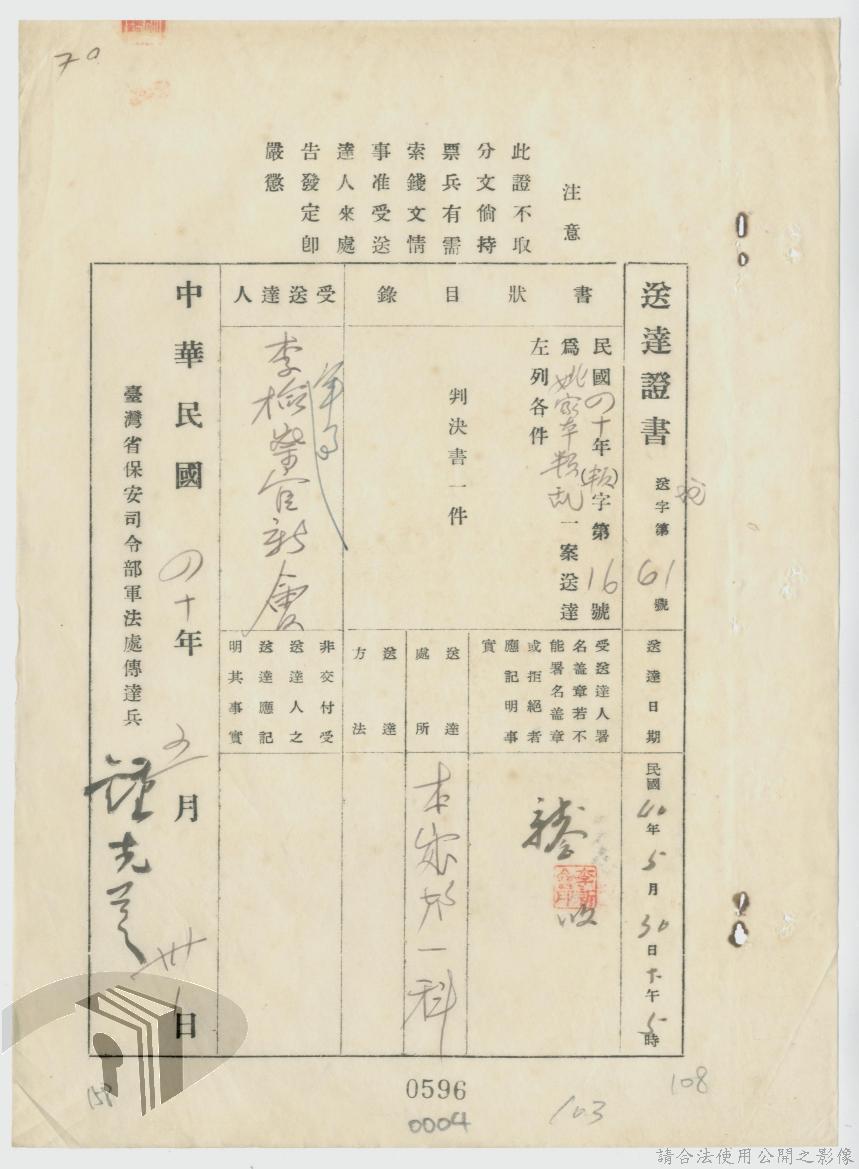 70
注意
此證不取
分文倘持
票兵有需
索錢文情
事准受送
達人來處
告發定卽
嚴懲
送達證書
送字第61號
送達日期
民國40年5月30日下午5時
書狀目錄
民國四十年(叛)字第16號
爲姚家本叛乱一案送達
左列各件
判決書一件
受送達人署
名蓋章若不
能署名蓋章
或拒絕者
應記明事
實
收
送達處所
本處一科
送達方法
受送達人
軍事
李檢察官新會
非交付受
送達人之
送達應記
明其事實
中華民國四十年五月卅日
臺灣省保安司令部軍法處傳達兵
鍾光
0596
0004
103
108
159
請合法使用公開之影像